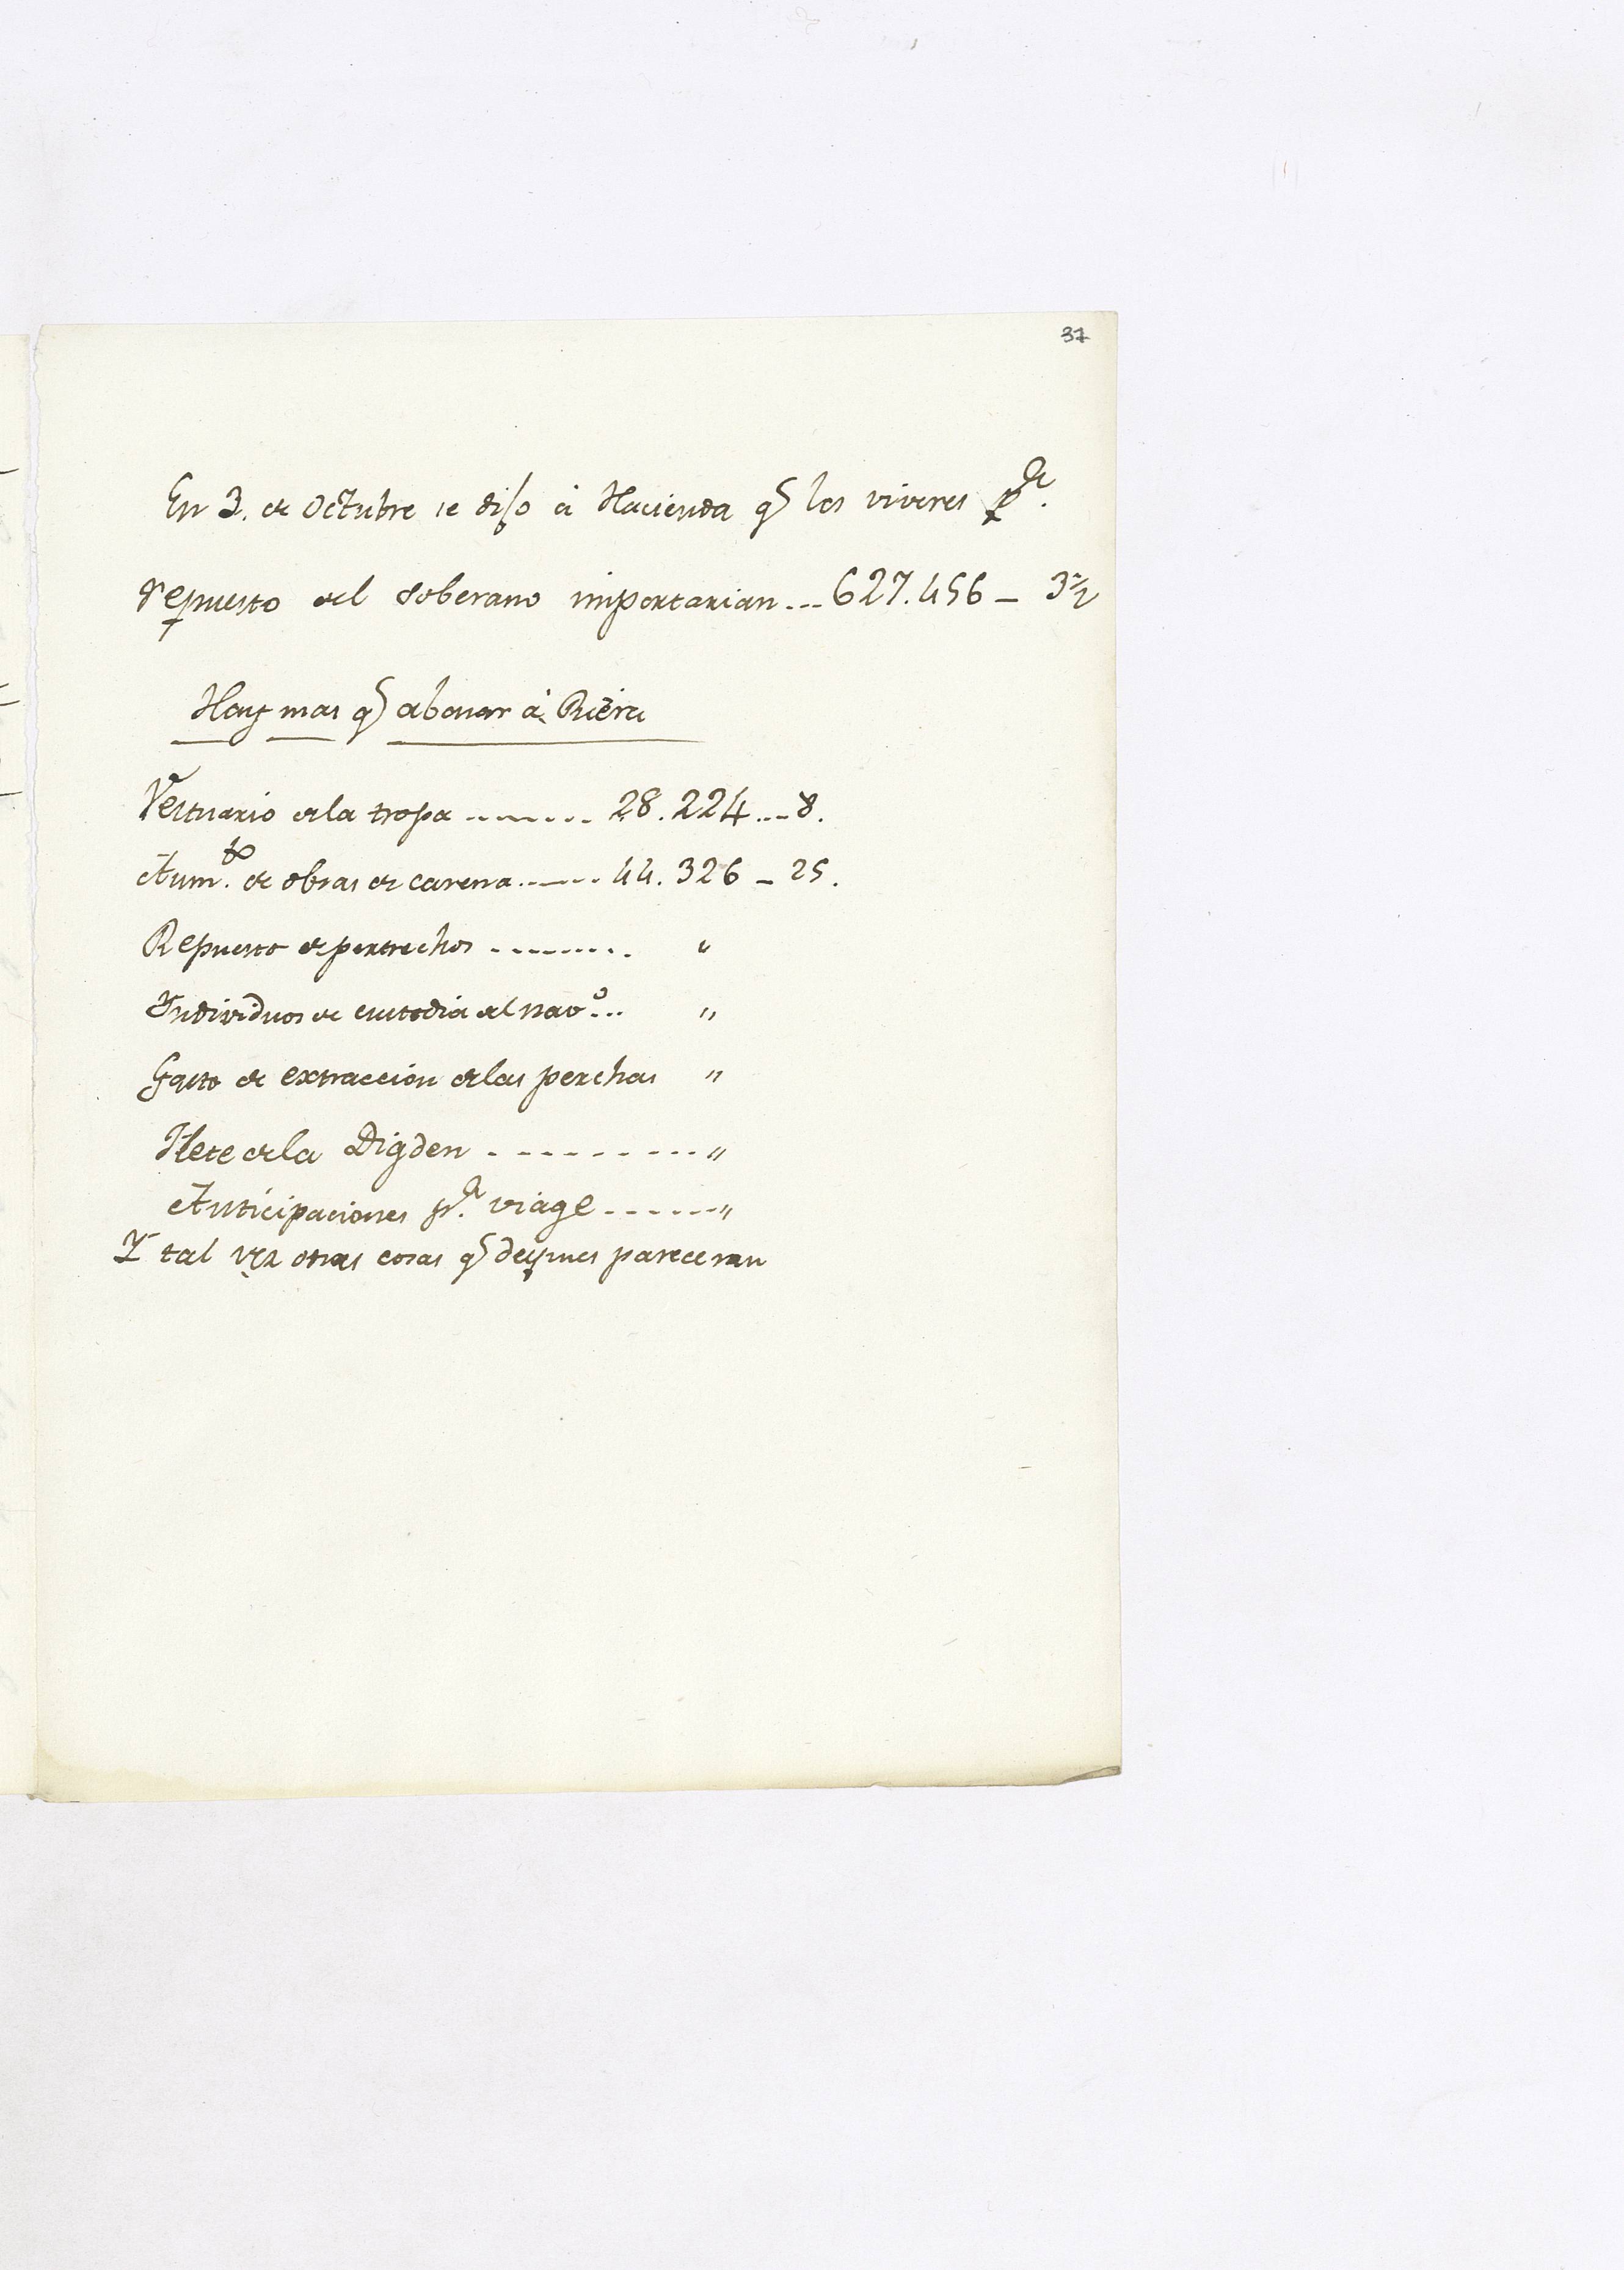 37
En 3. de Octubre se dijo á Hacienda q.e los viveres p.a
repuesto del Soberano importarian... 627.456 - 3 1/2
Hay mas q.e abonar á Riera
Vestuario de la tropa ........ 28.224...8.
Aum.to de obras de carena....... 44.326 - 25.
Repuesto de pertrechos ......... "
Individuos de custodia del nav.o... "
Gasto de extraccion de las perchas "
Flete de la Digden ......... "
Anticipaciones p.a viage ...... "
Y tal vez otras cosas q.e despues pareceran